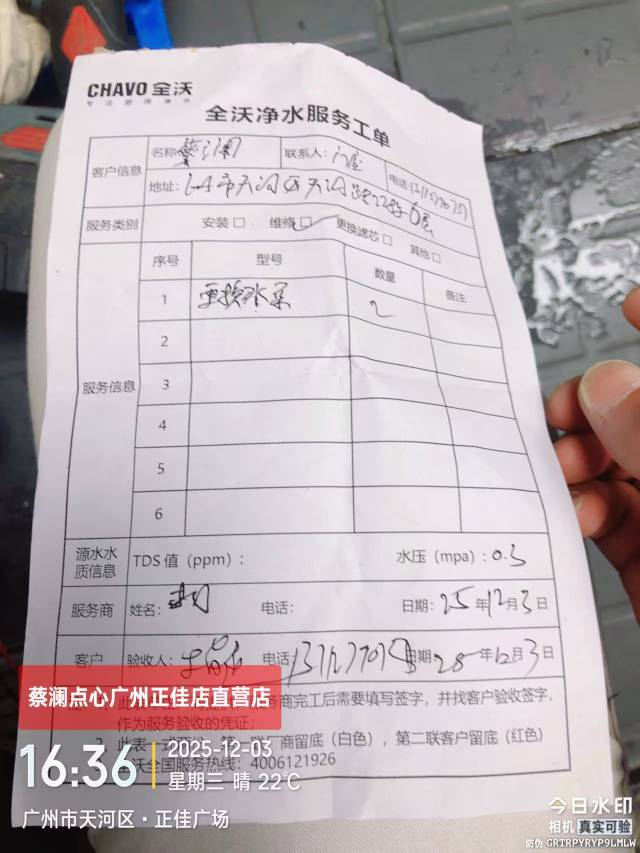 CHAVO 全沃
专注厨房净水
全沃净水服务工单
客户信息 名称 蔡澜 联系人: 电话:
地址: 广州市天河区天河路228号6层
服务类别 安装□ 维修□ 更换滤芯□ 其他□
服务信息 序号 型号 数量 备注
1 更换水泵 2
2
3
4
5
6
源水水质信息 TDS 值 (ppm): 水压 (mpa): 0.3
服务商 姓名: 电话: 日期: 25 年 12 月 3 日
客户 验收人: 电话 日期 25 年 12 月 3 日
商完工后需要填写签字,并找客户验收签字,
作为服务验收的凭证;
2、此表一式两 商留底 (白色),第二联客户留底 (红色)
沃全国服务热线: 4006121926
蔡澜点心广州正佳店直营店
16:36
2025-12-03
星期三 晴 22℃
广州市天河区·正佳广场
今日水印
相机 真实可验
防伪 GRTRPYRYP9LMLW